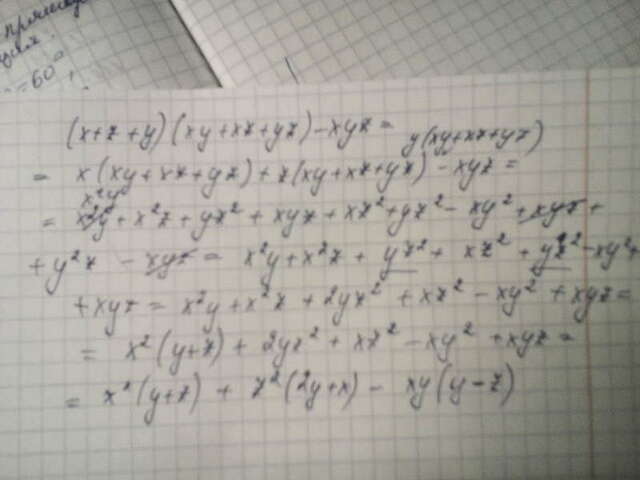 =60°
(x+z+y)(xy+xz+yz)-xyz= y(xy+xz+yz)
= x(xy+xz+yz)+z(xy+xz+yz)-xyz=
x²y
= x²y+x²z+yz²+xyz+xz²+yz²-xy²+xyz+
+y²z-xyz= x²y+x²z+yz²+xz²+yz²-xy²+
+xyz= x²y+x²z+2yz²+xz²-xy²+xyz=
= x²(y+z)+2yz²+xz²-xy²+xyz=
= x²(y+z)+z²(2y+x)-xy(y-z)